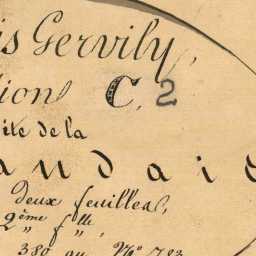 is Gervily,
tion C. 2
dite de la
andaie
deux feuilles,
2ème flle
380 au No 783